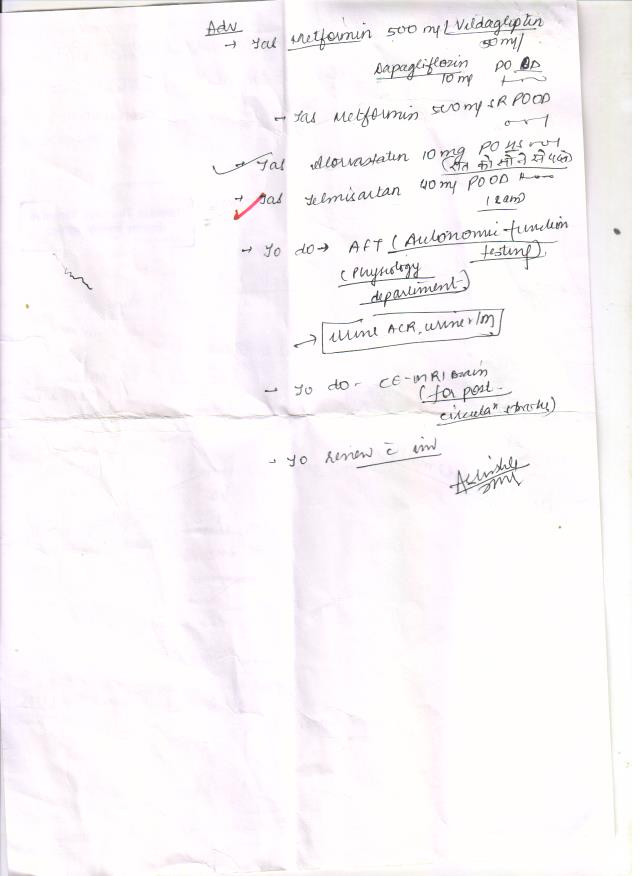 Adv
→ Tab Metformin 500 mg/Vildagliptin
50 mg/
Dapagliflozin
10 mg PO
→ Tab Metformin 500mg SR PO OD
→ Tab Atorvastatin 10mg PO HS
(रात को सोने से पहले)
→ Tab Telmisartan 40 mg PO OD
→ To do → AFT (Autonomic function
testing)
(Physiology
department)
→ Urine ACR, urine r/m
→ To do - CE-MRI Brain
(for post
circulaⁿ stroke)
→ To review c̄ inv